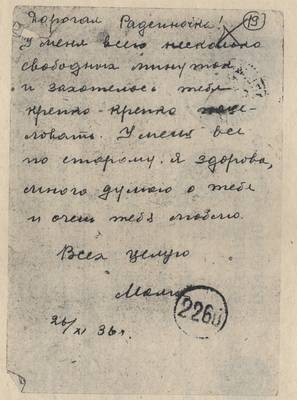 Дорогая Радсиночка! (9)
У меня всего несколько
свободных минуток
и захотелось тебя
крепко-крепко поце-
ловать. У меня все
по старому. Я здорова,
много думаю о тебе
и очень тебя люблю.
Всех целую
Мама
26/XI 36 г.
226